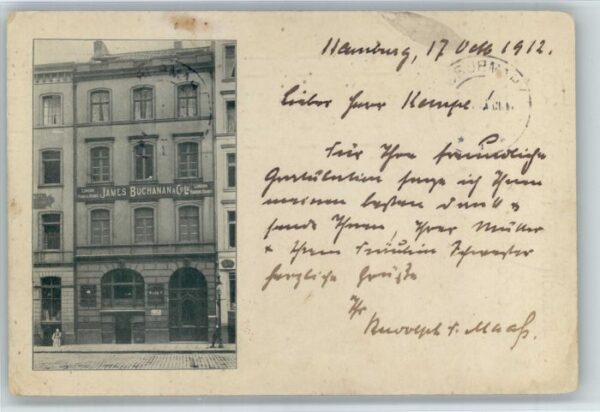 Hamburg, 17 Oct 1912.
Lieber Herr Kempe!
Für Ihre freundliche
Gratulation sage ich Ihnen
meinen besten Dank &
sende Ihnen, Ihrer Mutter
& Ihrem Fräulein Schwester
herzliche Grüße
Ihr
Rudolph S. Maaß.
LONDON JAMES BUCHANAN & Co Ld LONDON